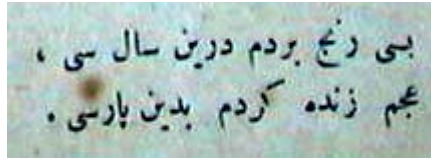 بسی رنج بردم درین سال سی ،
عجم زنده کردم بدین پارسی .